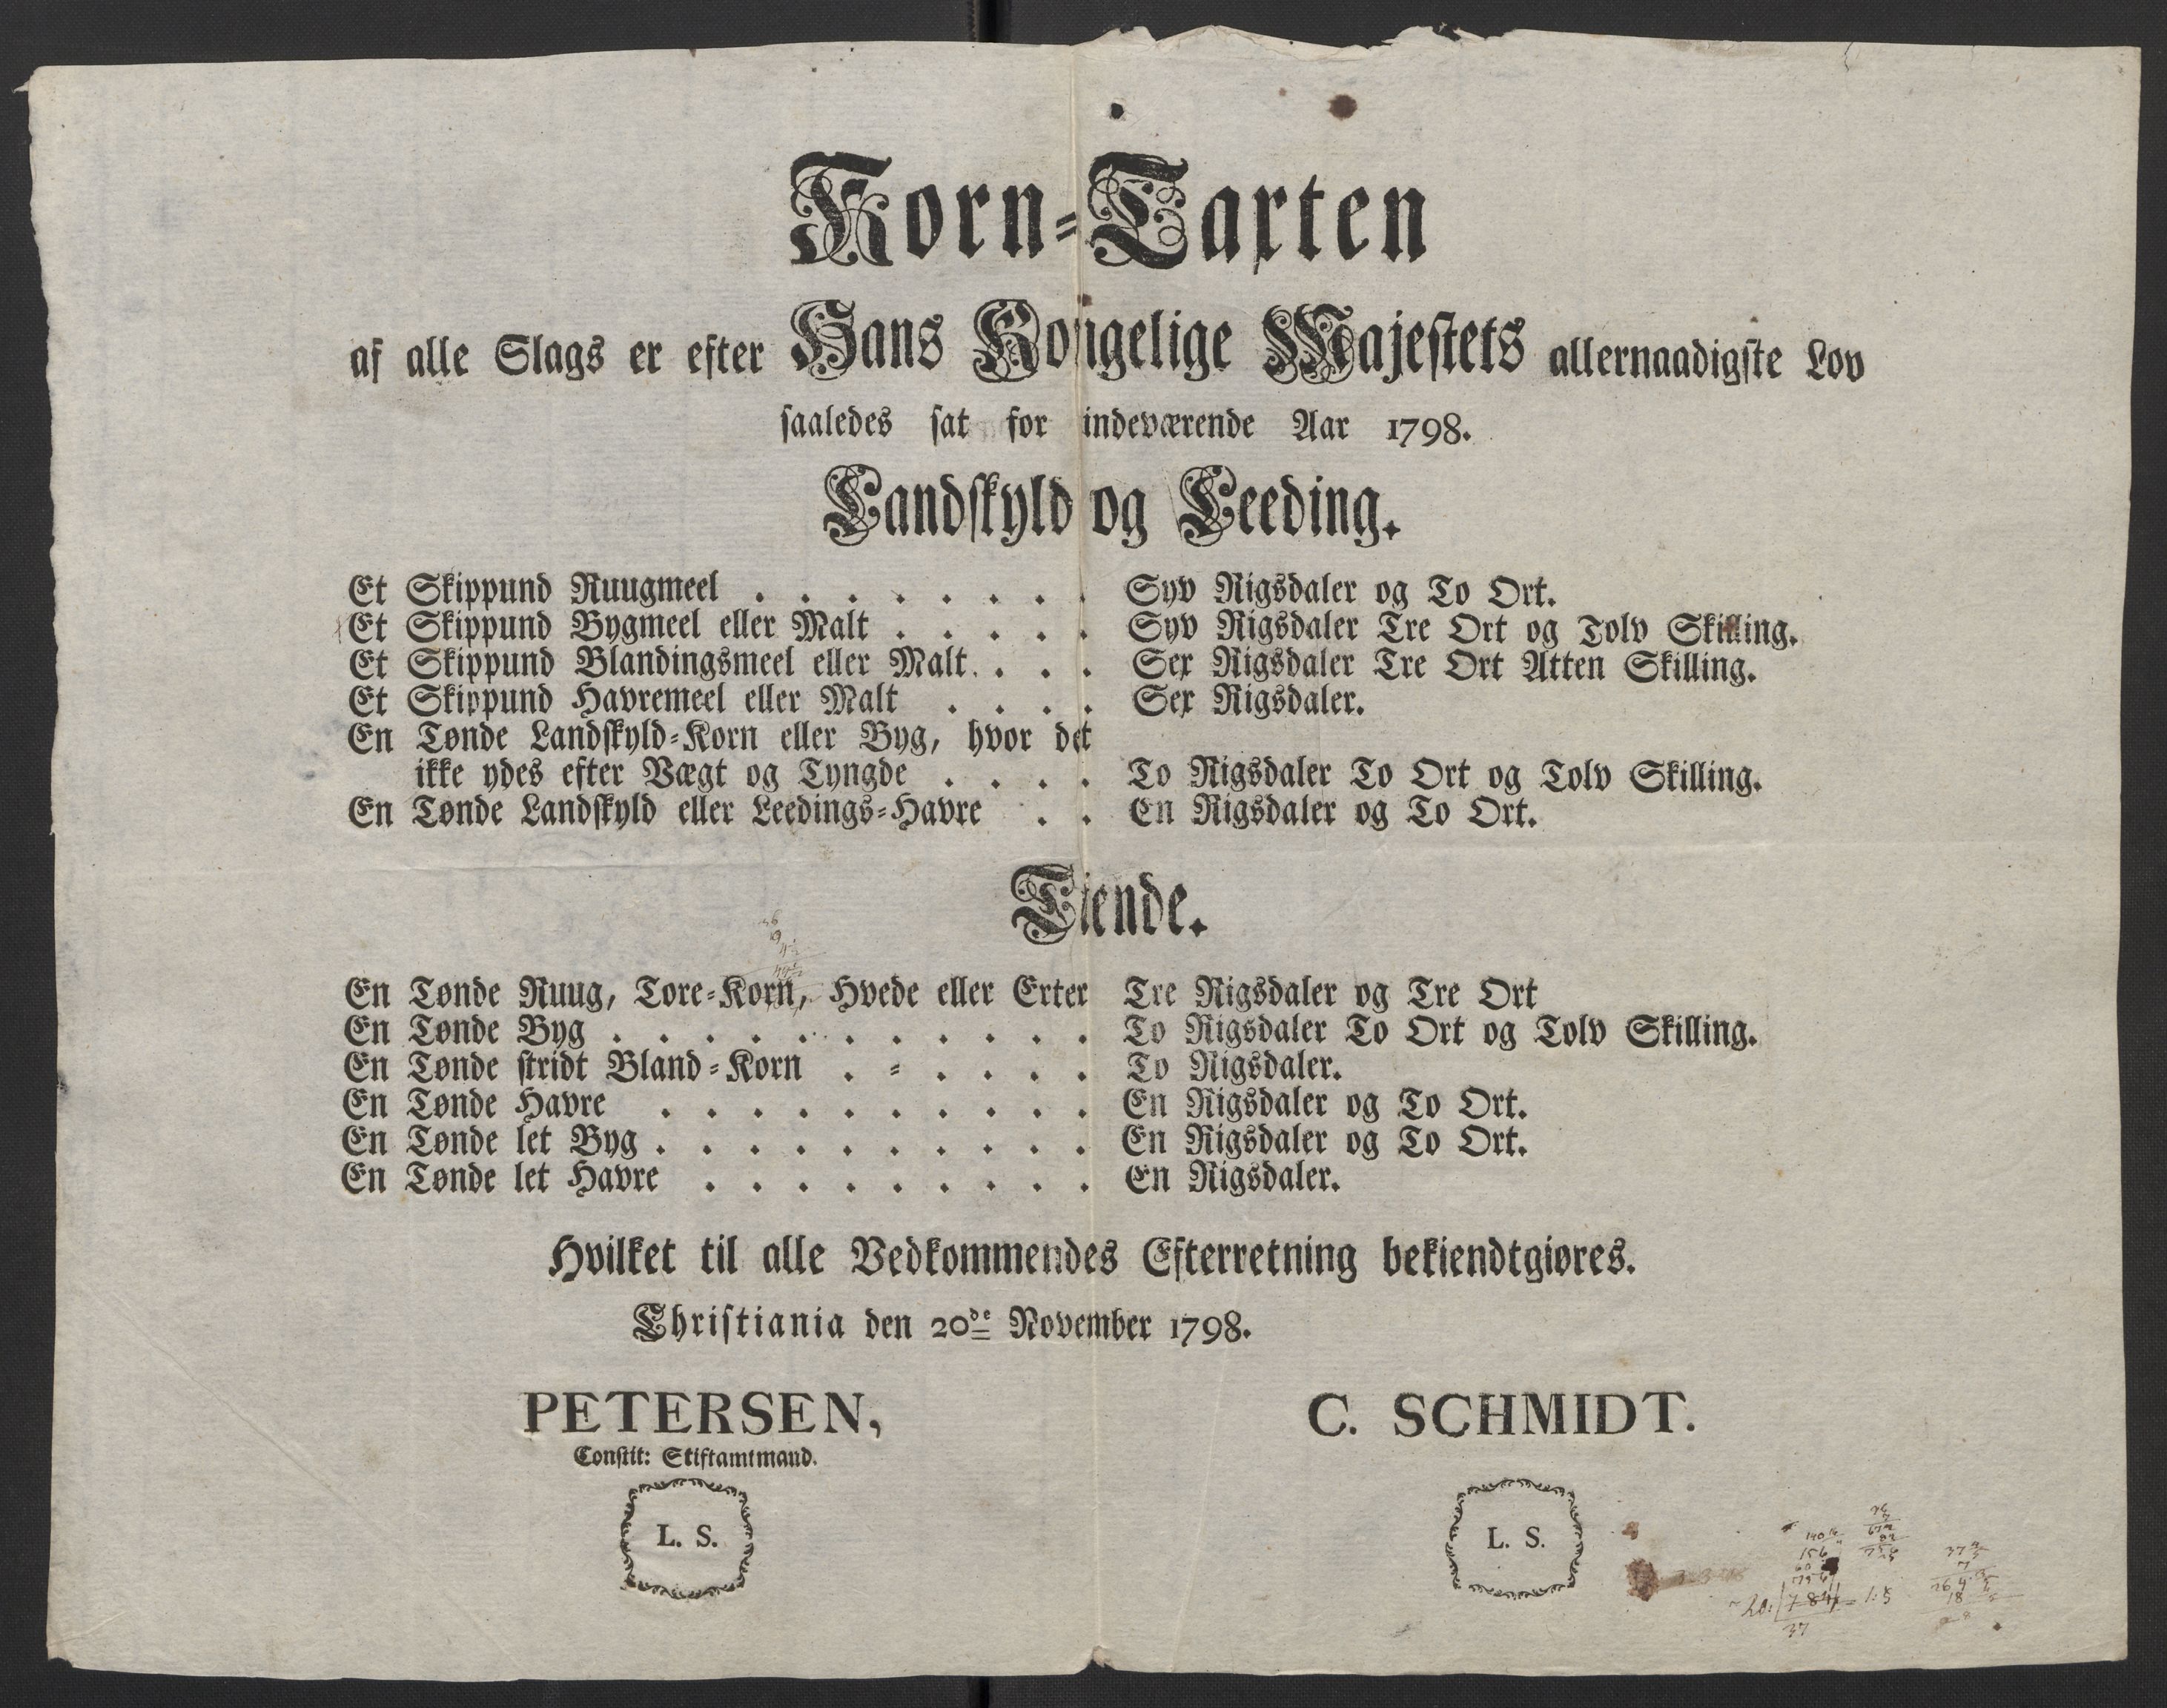 Korn-Taxten
af alle Slags er efter Hans Kongelige Majestets allernaadigste Lov
saaledes sat for indeværende Aar 1798.
Landskyld og Leeding.
Et Skippund Ruugmeel . . . . . . . . Syv Rigsdaler og To Ort.
Et Skippund Bygmeel eller Malt . . . . . Syv Rigsdaler Tre Ort og Tolv Skilling.
Et Skippund Blandingsmeel eller Malt . . . Sex Rigsdaler Tre Ort Atten Skilling.
Et Skippund Havremeel eller Malt . . . . Sex Rigsdaler.
En Tønde Landskyld-Korn eller Byg, hvor det
ikke ydes efter Vægt og Tyngde . . . . To Rigsdaler To Ort og Tolv Skilling.
En Tønde Landskyld eller Leedings-Havre . . En Rigsdaler og To Ort.
Tiende.
En Tønde Ruug, Tore-Korn, Hvede eller Erter Tre Rigsdaler og Tre Ort
En Tønde Byg . . . . . . . . . . . To Rigsdaler To Ort og Tolv Skilling.
En Tønde stridt Bland-Korn . - . . . . To Rigsdaler.
En Tønde Havre . . . . . . . . . . En Rigsdaler og To Ort.
En Tønde let Byg . . . . . . . . . . En Rigsdaler og To Ort.
En Tønde let Havre . . . . . . . . . En Rigsdaler.
Hvilket til alle Vedkommendes Efterretning bekiendtgiøres.
Christiania den 20de November 1798.
PETERSEN,
Constit: Stiftamtmand.
L. S.
C. SCHMIDT.
L. S.